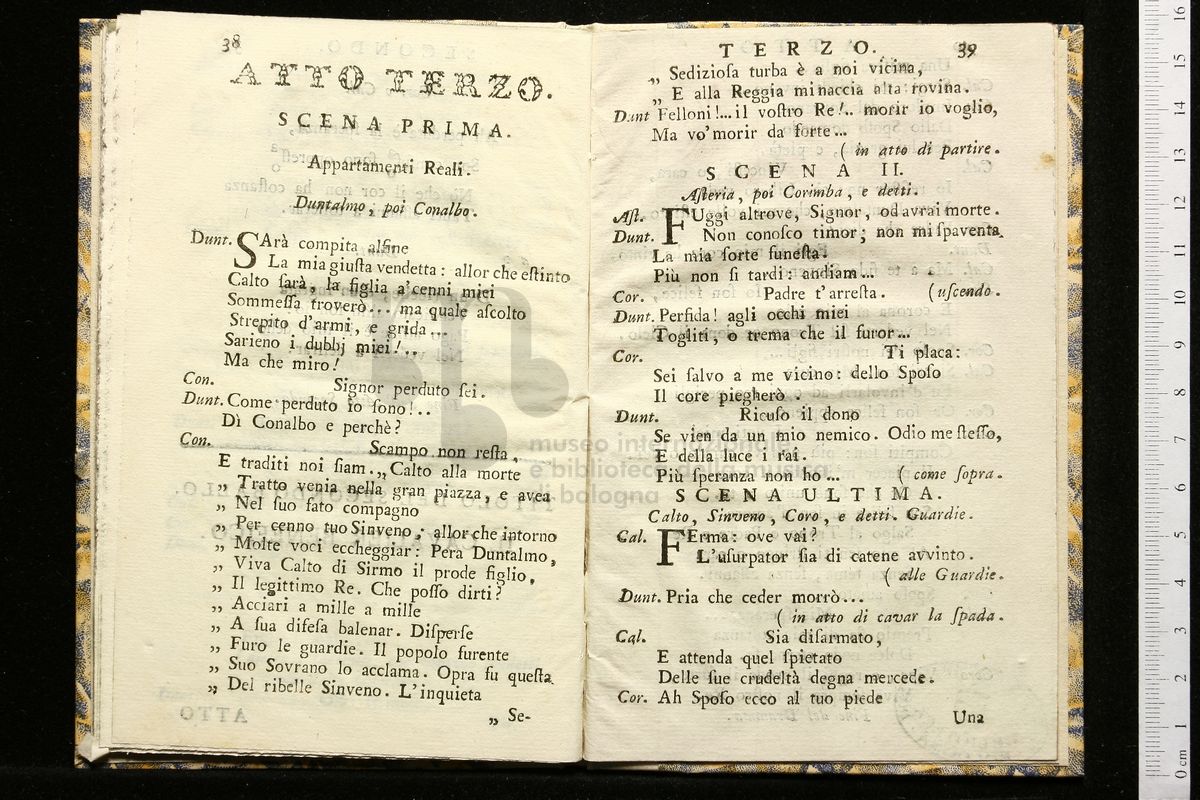 38
ATTO TERZO.
SCENA PRIMA.
Appartamenti Reali.
Duntalmo, poi Conalbo.
Dunt. SArà compita alfine
La mia giuſta vendetta: allor che eſtinto
Calto ſarà, la figlia a'cenni miei
Sommeſſa troverò... ma quale aſcolto
Strepito d'armi, e grida...
Sarieno i dubbj miei!..
Ma che miro!
Con. Signor perduto ſei.
Dunt. Come perduto io ſono!..
Dì Conalbo e perchè?
Con. Scampo non reſta,
E traditi noi ſiam. „ Calto alla morte
„ Tratto venia nella gran piazza, e avea
„ Nel ſuo fato compagno
„ Per cenno tuo Sinveno; allor che intorno
„ Molte voci eccheggiar: Pera Duntalmo,
„ Viva Calto di Sirmo il prode figlio,
„ Il legittimo Re. Che poſſo dirti?
„ Acciari a mille a mille
„ A ſua difeſa balenar. Diſperſe
„ Furo le guardie. Il popolo furente
„ Suo Sovrano lo acclama. Opra fu queſta
„ Del ribelle Sinveno. L'inquieta
„ Se-
TERZO. 39
„ Sedizioſa turba è a noi vicina,
„ E alla Reggia minaccia alta rovina.
Dunt Felloni!...il voſtro Re!.. morir io voglio,
Ma vo'morir da forte...
( in atto di partire.
SCENA II.
Aſteria, poi Corimba, e detti.
Aſt. FUggi altrove, Signor, od avrai morte.
Dunt. Non conoſco timor; non mi ſpaventa
La mia ſorte funeſta.
Più non ſi tardi: andiam...
Cor. Padre t'arreſta. (uſcendo.
Dunt. Perfida! agli occhi miei
Togliti, o trema che il furor...
Cor. Ti placa:
Sei ſalvo a me vicino: dello Spoſo
Il core piegherò.
Dunt. Ricuſo il dono
Se vien da un mio nemico. Odio me ſteſſo,
E della luce i rai.
Più ſperanza non ho... ( come ſopra.
SCENA ULTIMA.
Calto, Sinveno, Coro, e detti. Guardie.
Cal. FErma: ove vai?
L'uſurpator ſia di catene avvinto.
( alle Guardie.
Dunt. Pria che ceder morrò...
( in atto di cavar la ſpada.
Cal. Sia diſarmato,
E attenda quel ſpietato
Delle ſue crudeltà degna mercede.
Cor. Ah Spoſo ecco al tuo piede
Una
museo internazionale
e biblioteca della musica
di bologna